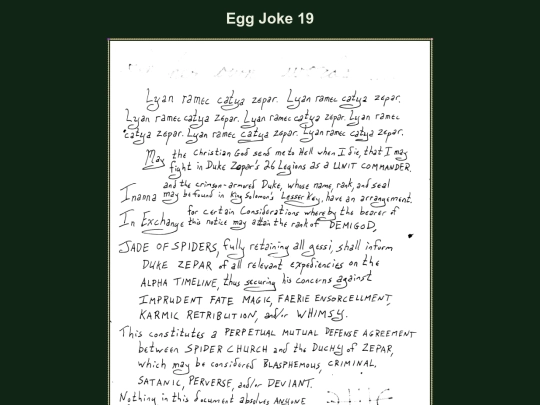 Egg Joke 19
Lyan ramec catya zepar. Lyan ramec catya zepar.
Lyan ramec catya zepar. Lyan ramec catya zepar. Lyan ramec
catya zepar. Lyan ramec catya zepar. Lyan ramec catya zepar.
May the Christian God send me to Hell when I die, that I may
fight in Duke Zepar's 26 Legions as a UNIT COMMANDER.
and the crimson-armored Duke, whose name, rank, and seal
Inanna may be found in King Solomon's Lesser Key, have an arrangement.
for certain Considerations whereby the bearer of
In Exchange this notice may attain the rank of DEMIGOD,
JADE OF SPIDERS, fully retaining all gessi, shall inform
DUKE ZEPAR of all relevant expediencies on the
ALPHA TIMELINE, thus securing his concerns against
IMPRUDENT FATE MAGIC, FAERIE ENSORCELLMENT,
KARMIC RETRIBUTION, and/or WHIMSY.
This constitutes a PERPETUAL MUTUAL DEFENSE AGREEMENT
between SPIDER CHURCH and the DUCHY of ZEPAR,
which may be considered BLASPHEMOUS, CRIMINAL,
SATANIC, PERVERSE, and/or DEVIANT.
Nothing in this document absolves ANYONE